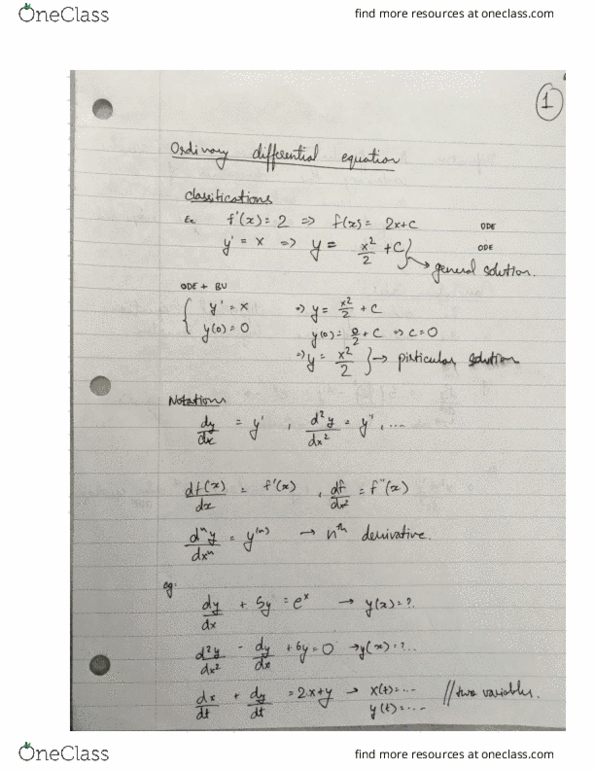 OneClass
find more resources at oneclass.com
1
Ordinary differential equation
classifications
Ex f'(x) = 2 => f(x) = 2x+c ODE
y' = x => y = x²/2 + C } → general solution. ODE
ODE + BV
{ y' = x => y = x²/2 + C
y(0) = 0 y(0) = 0/2 + C => C = 0
=> y = x²/2 } → pirticular solution
Notations
dy/dx = y' , d²y/dx² = y" , ...
df(x)/dx = f'(x) , df/dx² = f"(x)
dⁿy/dxⁿ = y⁽ⁿ⁾ → nth derivative.
eg:
dy/dx + 5y = eˣ → y(x) = ?.
d²y/dx² - dy/dx + 6y = 0 → y(x) = ?...
dx/dt + dy/dt = 2x+y → x(t) = ... // two variables.
y(t) = ...
OneClass
find more resources at oneclass.com